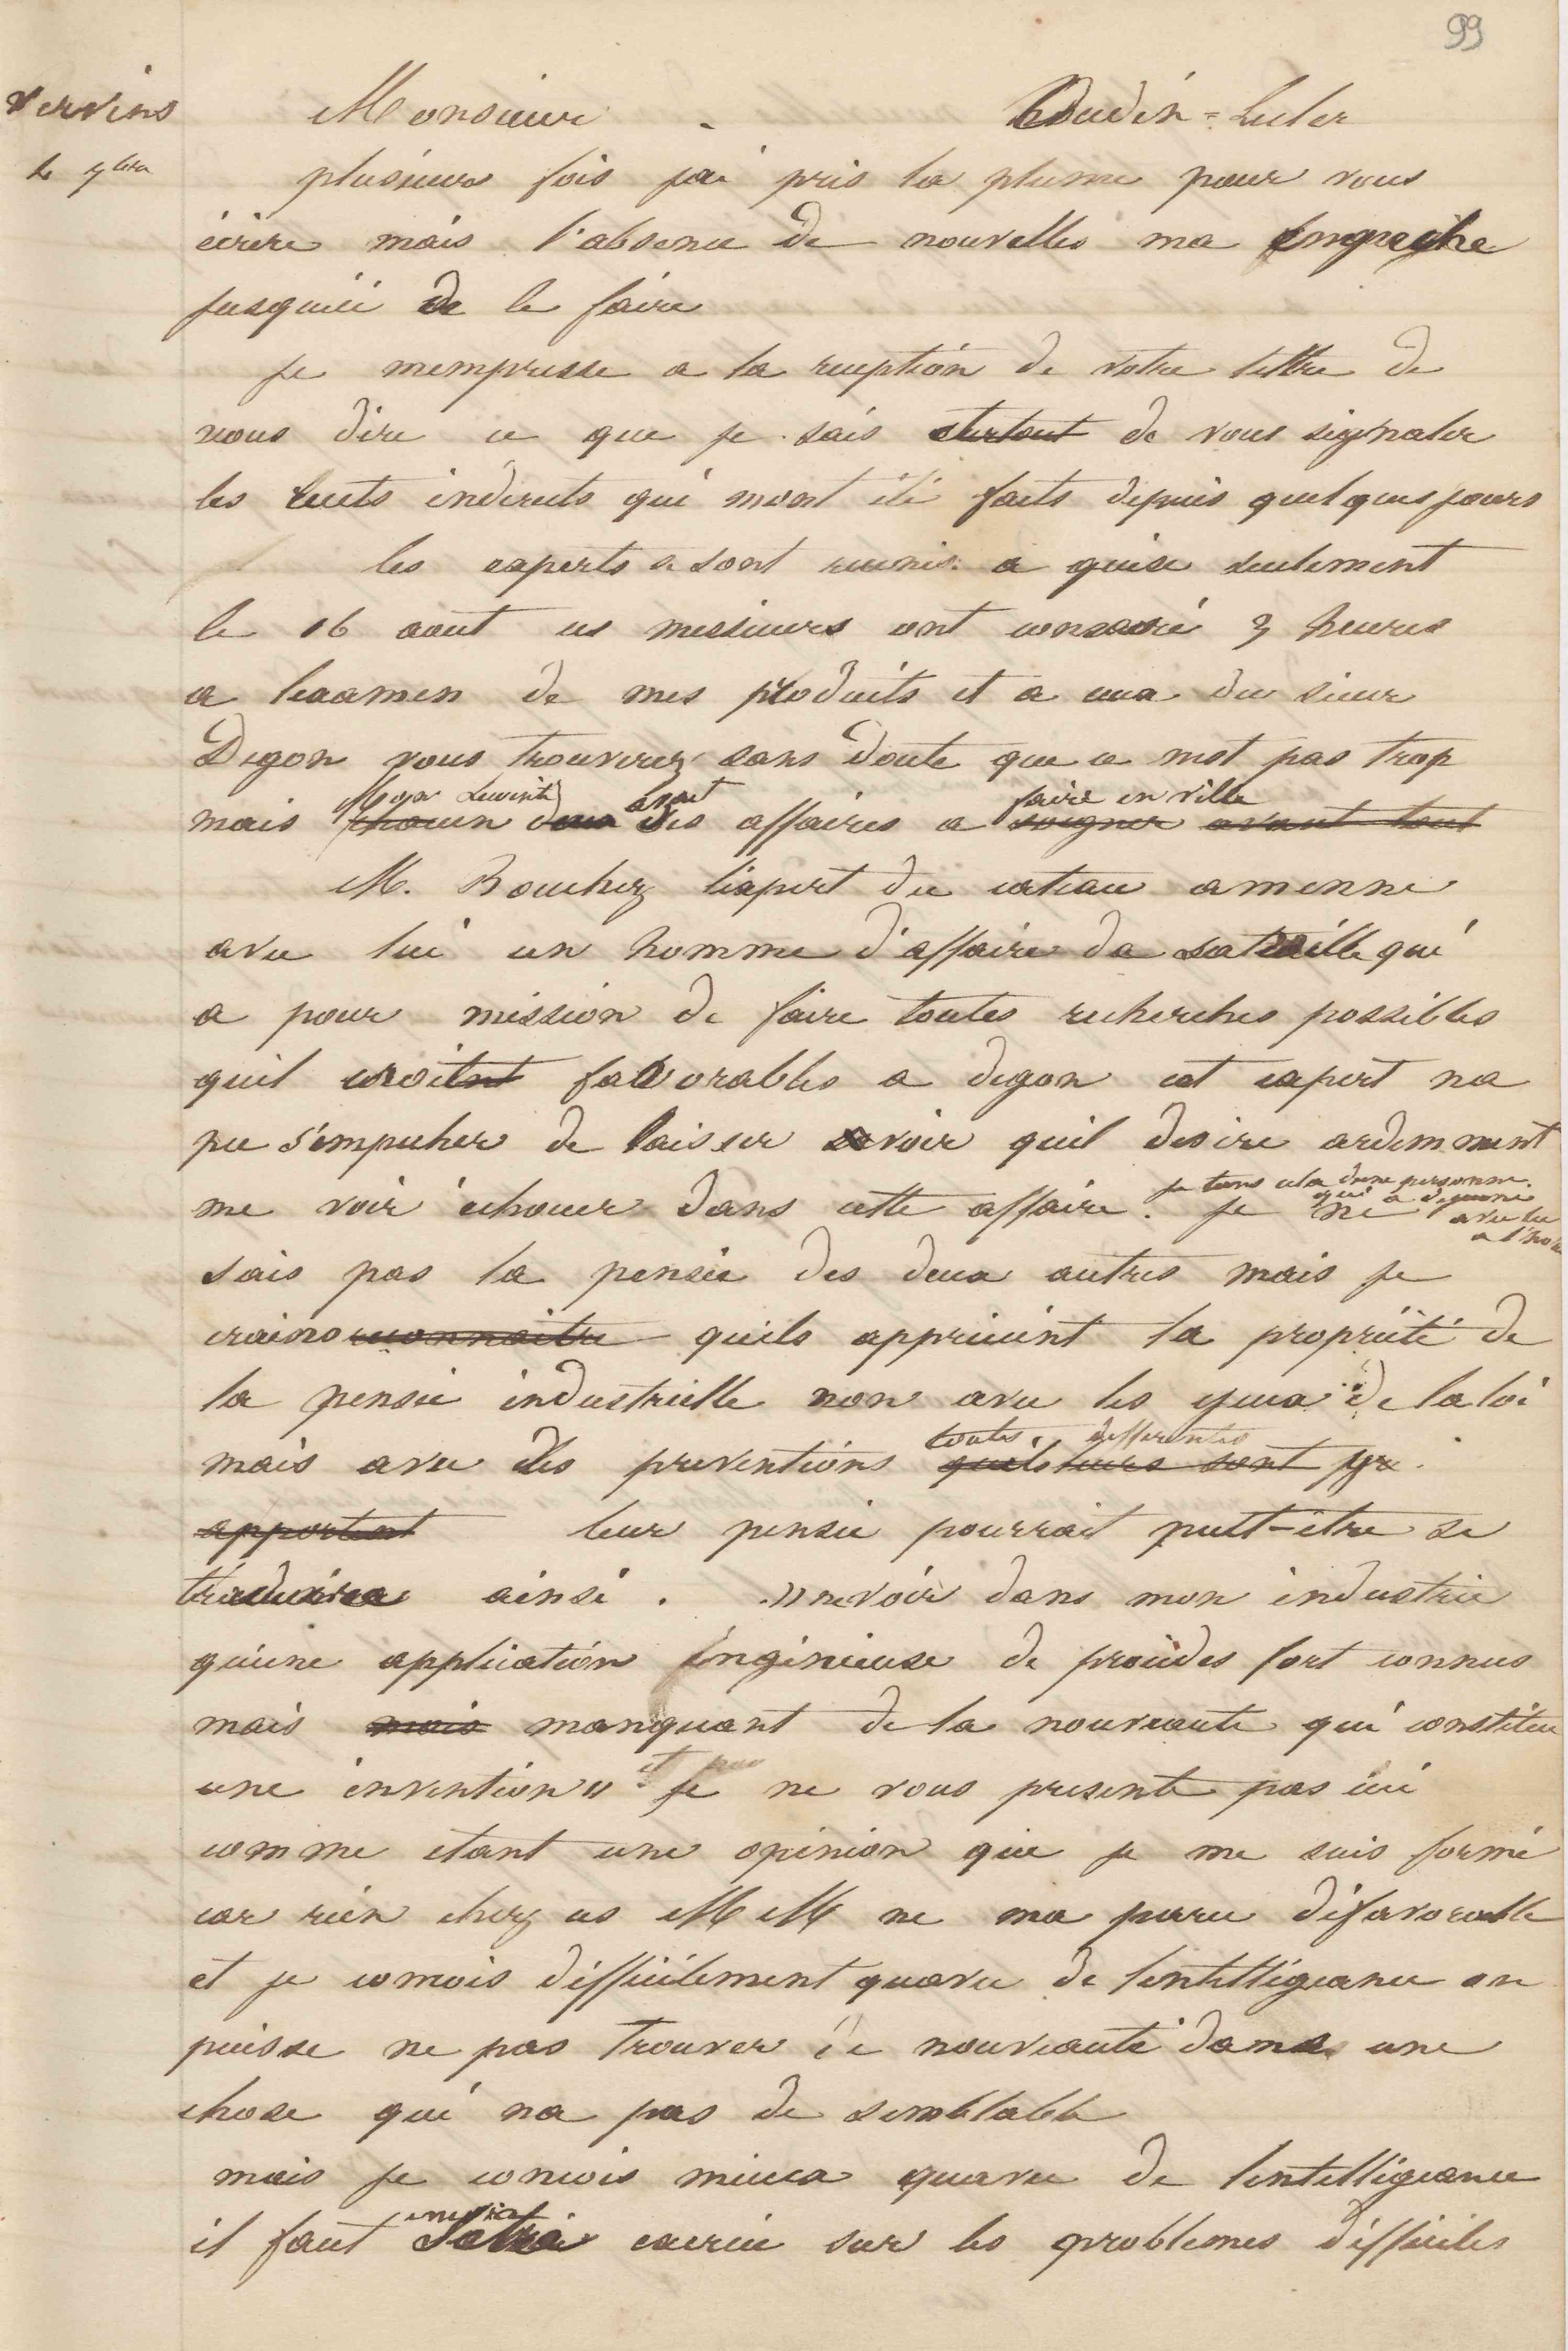 99
Vervins
le 7bre
Monsieur Oudin-Leclerc
plusieurs fois jai pris la plume pour vous
écrire mais l'absence de nouvelles ma empeche
jusquici de le faire
je mempresse a la reception de votre lettre de
vous dire ce que je sais surtout de vous signaler
les indirects qui mont été faits depuis quelques jours
les experts se sont reunis a guise seulement
le 16 aout ces messieurs ont consacré 3 heures
a lexamen de mes produits et a ceux du sieur
Degon vous trouverez sans doute que ce nest pas trop
faire en ville
mais chacun des affaires a soigner avant tout
M. Bouchez lexpert du cateau amenne
avec lui un homme d'affaire de qui
a pour mission de faire toutes recherches possibles
quil croit favorables a degon cet expert na
pu s'empecher de laisser voir quil desire ardemment
je tiens cela dune personne
qui a dejeuné
avec lui
me voir échouer dans cette affaire. je ne
sais pas la pensée des deux autres mais je
crains connaitre quils apprecient la propriété de
la pensée industrielle non avec les yeux de la loi
toutes differentes
mais avec des preventions quils sont
apportent leur pensée pourrait peut-etre se
traduire ainsi. " ne voir dans mon industrie
qu'une application ingénieuse de procédés fort connus
mais mais manquant de la nouveauté qui constitue
une invention " et je ne vous presente pas ici
comme etant une opinion que je me suis formé
car rien chez ces MM ne ma paru défavorable
et je concois difficilement quavec de lintelligeance on
puisse ne pas trouver de nouveauté dans une
chose qui na pas de semblable
mais je concois mieux quavec de lintelligeance
il faut exercée sur les problemes difficiles